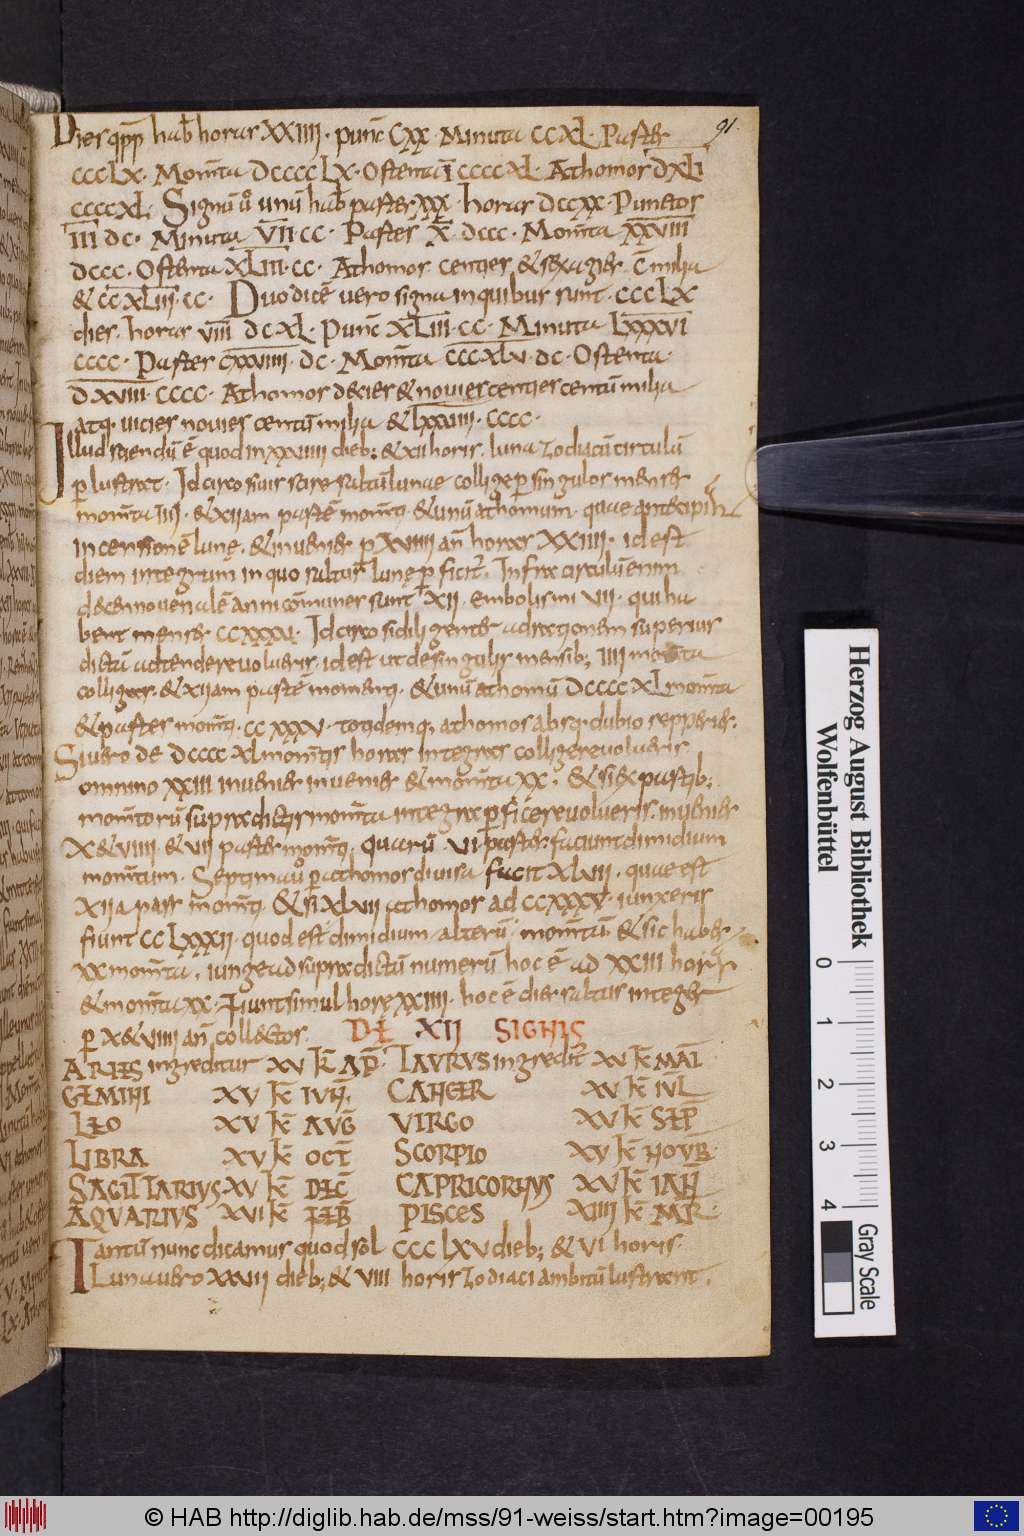 91.
Dies qpp hab horas XXIIII · punc CXX · Minuta CCXL · Partes
CCCLX · Momta DCCCCLX · Ostenta I CCCCXL · Athomos DXLI
CCCCXL · Signu u unu hab partes XXX · horas DCCXX · Punctos
III DC · Minuta VII · CC · Partes X · DCCC · Momta XXVIII
DCCC · Ostenta XLIII · CC · Athomos centies & sexagies · C milia
& CC XLIII · CC · Duodice vero signa in quibus sunt · CCCLX
dies · horas VIII DCXL · Punc XLIII · CC · Minuta LXXXVI
CCCC · Partes CXXVIIII · DC · Momta CCCXLV · DC · Ostenta ·
DXVIII · CCCC · Athomos decies & novies centies centu milia
atq · vicies novies centu milia & LXXXIIII · CCCC ·
Illud sciendu e quod in XXVIIII dieb; & XII horis · luna zodiacu circulu
p lustrat · Idcirco si vis scire saltu lunae collige p singulos menses
momta IIII · & XIIam parte momti & unu athomum · quae
incensione lune · & invenies p XVIIII an horas XXIIII · id est
diem integrum in quo saltus lune p ficit · Infra circulu enim
decennovenale anni comunes sunt XII · embolismi VII · qui ha
bent menses CCXXXV · Idcirco si diligenter ad rationem superius
dictu adtendere volueris · id est ut de singulis mensib; IIII momta
colligas · & XIIam parte momenti · & unu athomu DCCCCXL momta
& partes momti · CCXXXV · totidemq; athomos absq dubio repperies ·
Si vero de DCCCCXL momtis horas integras colligere volueris
omnino XXIII invenies invenies & momta XX · & si ex partib;
momtoru supra dictis momta integra p ficere volueris · invenies
X & VIIII · & VII partes momti · quaru · VI partes faciunt dimidium
momtum · Septima u p athomos divisa facit XLVII · quae est
XIIa pars momti · & si XLVII athomos ad CCXXXV · iunxeris
fiunt CCLXXXII · quod est dimidium alteru momtu & sic habes
XX momta · iunge ad supra dictu numeru hoc e ad XXIII horas
& momta XX · Fiunt simul hore XXIIII · hoc e dies saltus integer
p X & VIIII an collectos · DE XII SIGNIS
ARIES ingreditur XV K AP · TAURUS ingredit XV K MAI
GEMINI XV K IUN · CANCER XV K IUL
LEO XV K AUG VIRGO XV K SEP
LIBRA XV K OCT SCORPIO XV K NOVB
SAGITTARIUS XV K DEC CAPRICORNUS XV K IAN
AQVARIVS XVI K FEB PISCES XIIII K MR ·
Tantu nunc dicamus quod sol CCCLXV dieb; & VI horis ·
Luna vero XXVII dieb; & VIII horis zodiaci ambitu lustrant ·
Herzog August Bibliothek
Wolfenbüttel
0 1 2 3 4
Gray Scale
© HAB http://diglib.hab.de/mss/91-weiss/start.htm?image=00195